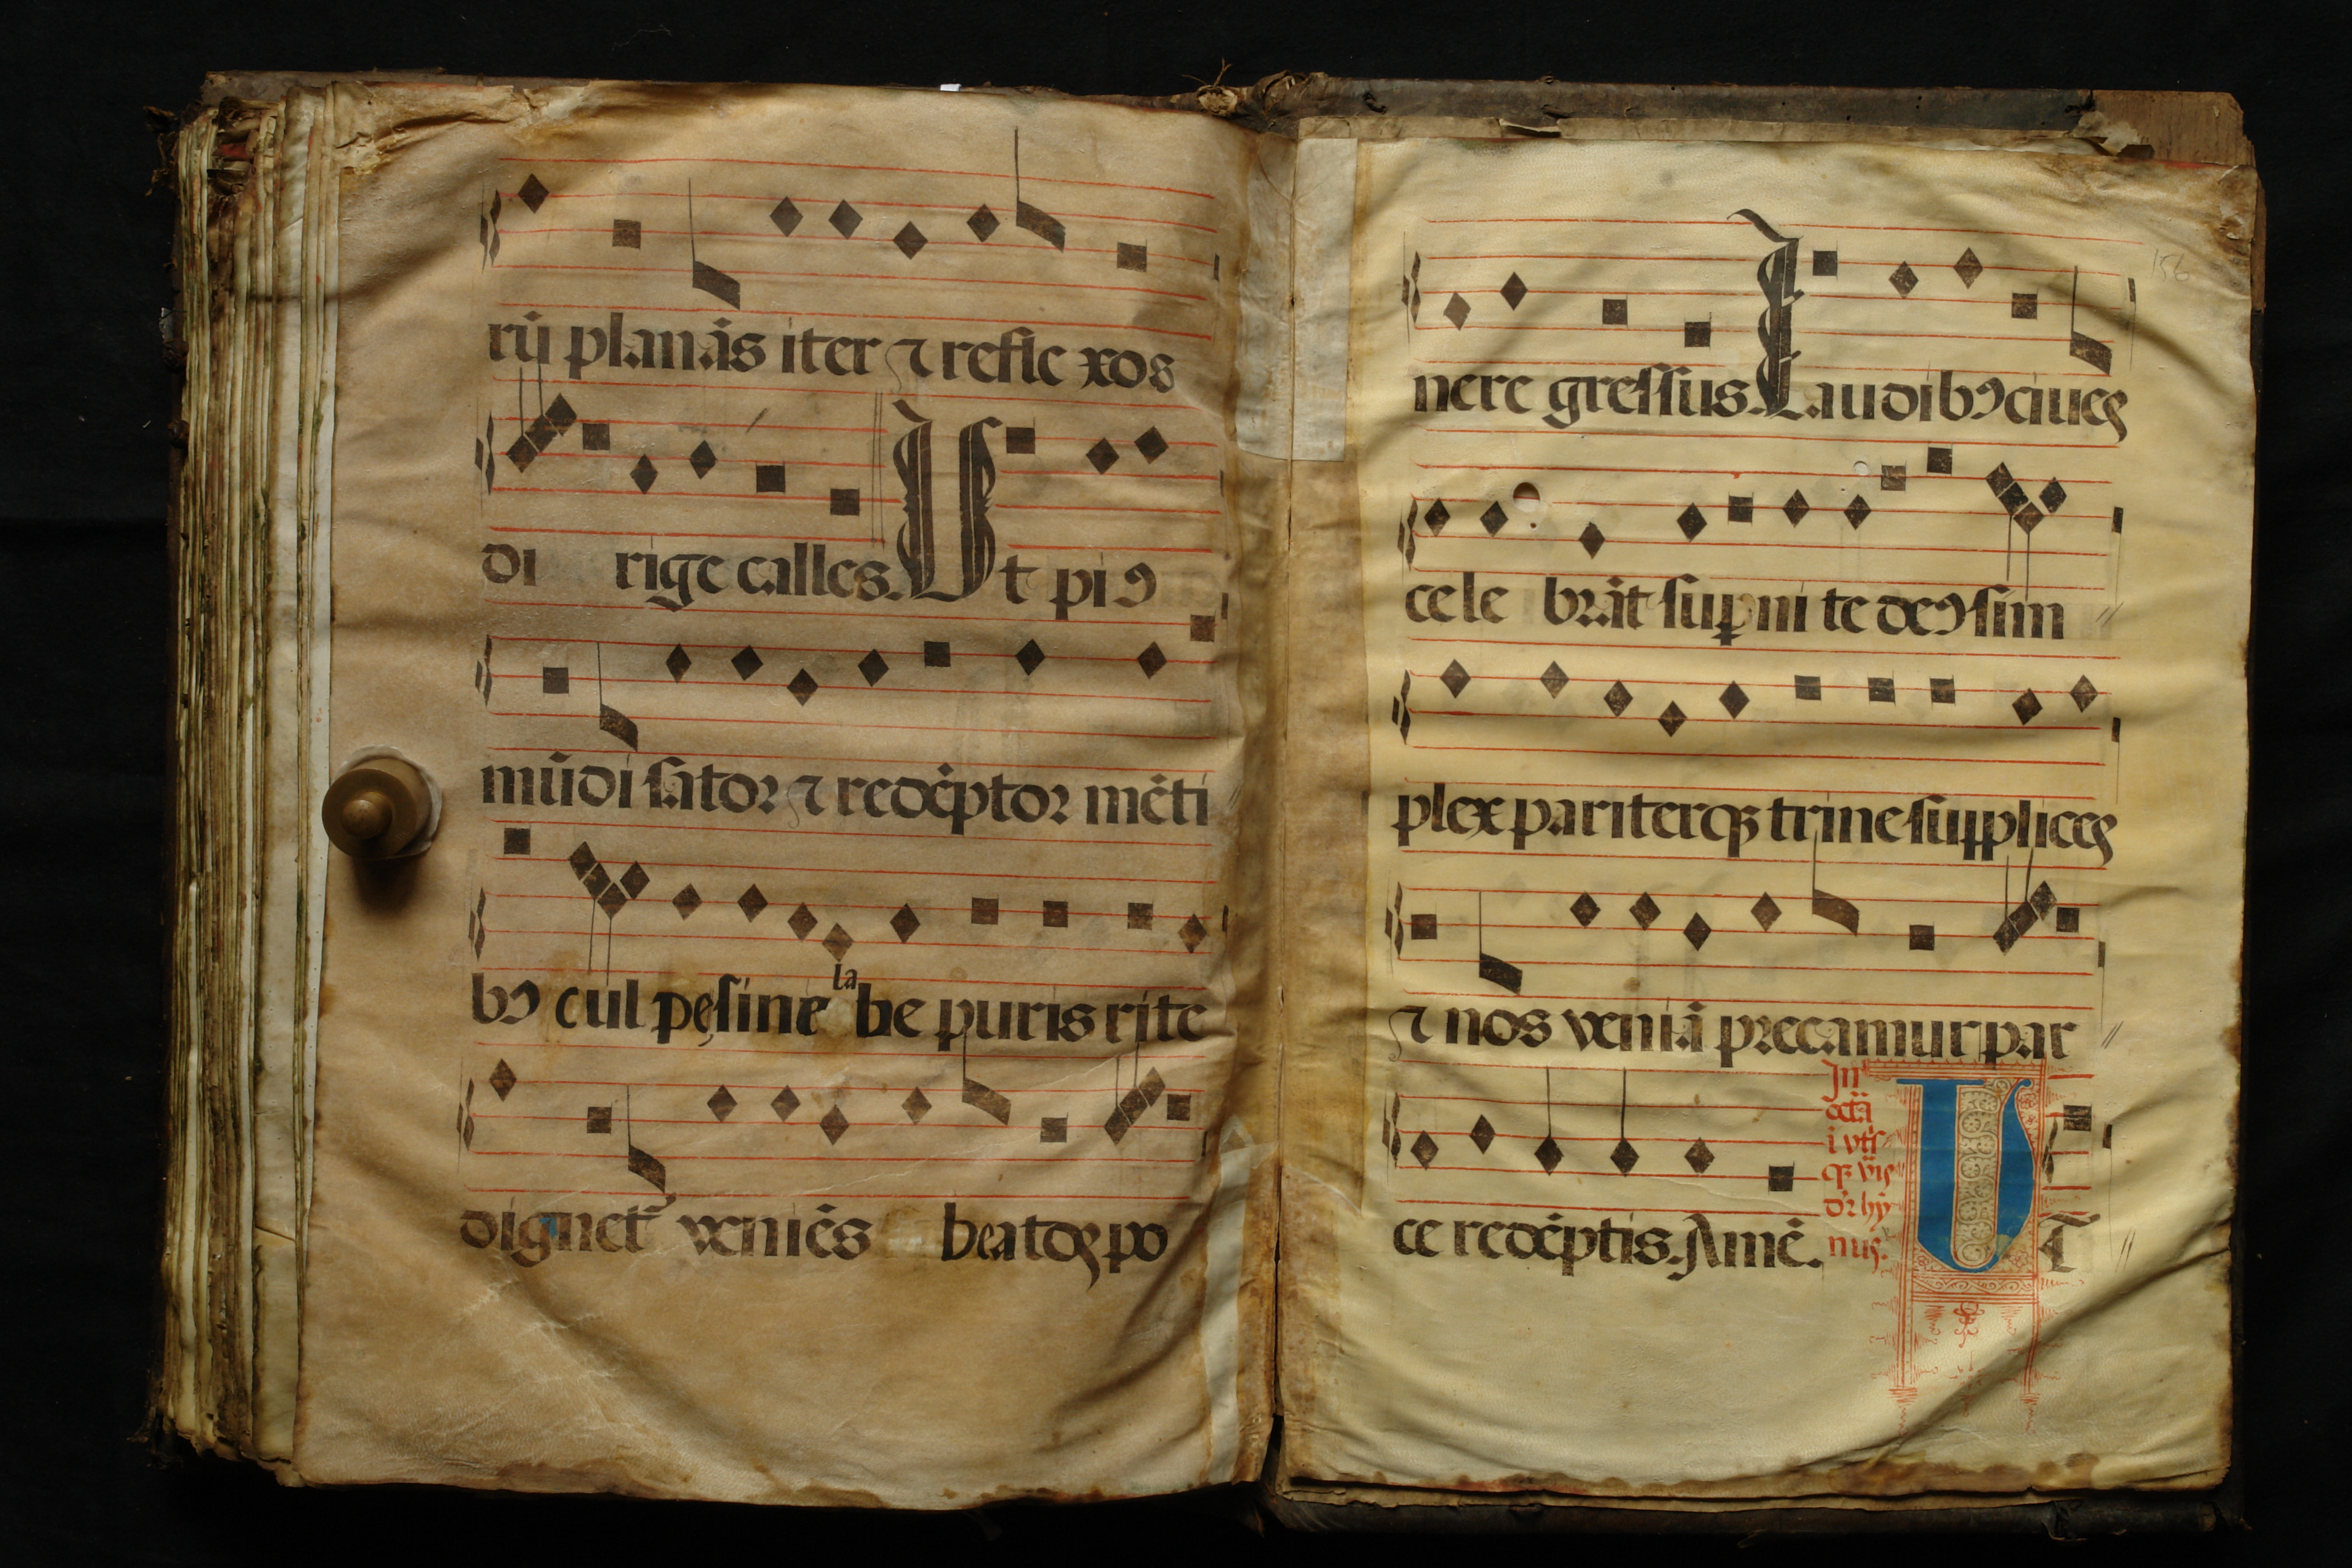 rū planās iter ⁊ refle xos
di rige calles. Ut piꝰ
mūdi sator ⁊ redēptor mēti
bꝰ cul pę sine labe puris rite
dignet᷑ veniēs beatoꝝ po
156
nere gressus. Laudibꝰ ciues
cele brāt suꝑni te deꝰ sim
plex pariterqꝫ trine supplices
⁊ nos veniā precamur par
ce redēptis. Amē.
UT